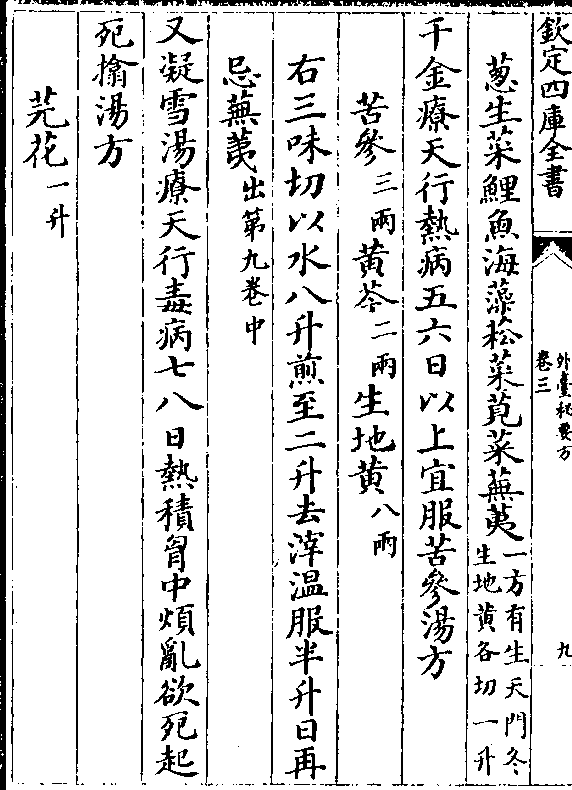 欽定四庫全書
外臺秘要方
卷三
九
葱生菜鯉魚海藻菘菜莧菜蕪荑一方有生天門冬生地黃各切一升
千金療天行熱病五六日以上宜服苦參湯方
苦參三兩黃芩二兩生地黃八兩
右三味切以水八升煎至二升去滓溫服半升日再
忌蕪荑出第九卷中
又凝雪湯療天行毒病七八日熱積胷中煩亂欲死起
死搶湯方
芫花一升